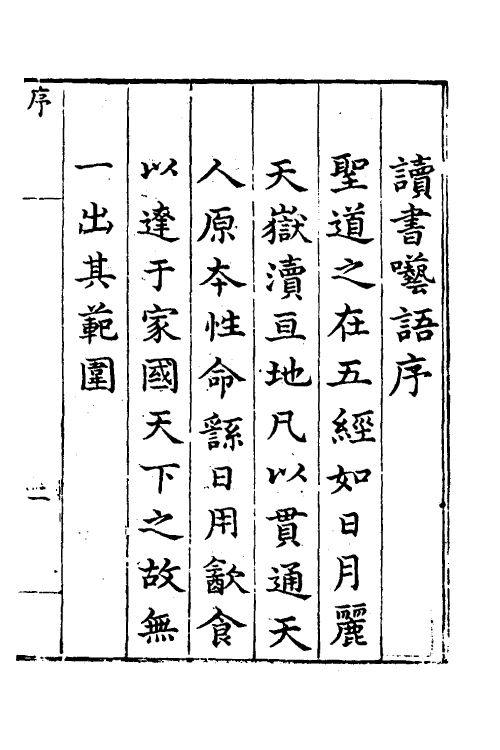 讀書囈語序
聖道之在五經如日月麗
天嶽瀆亘地凡以貫通天
人原本性命繇日用歠食
以達于家國天下之故無
一出其範圍
序
一